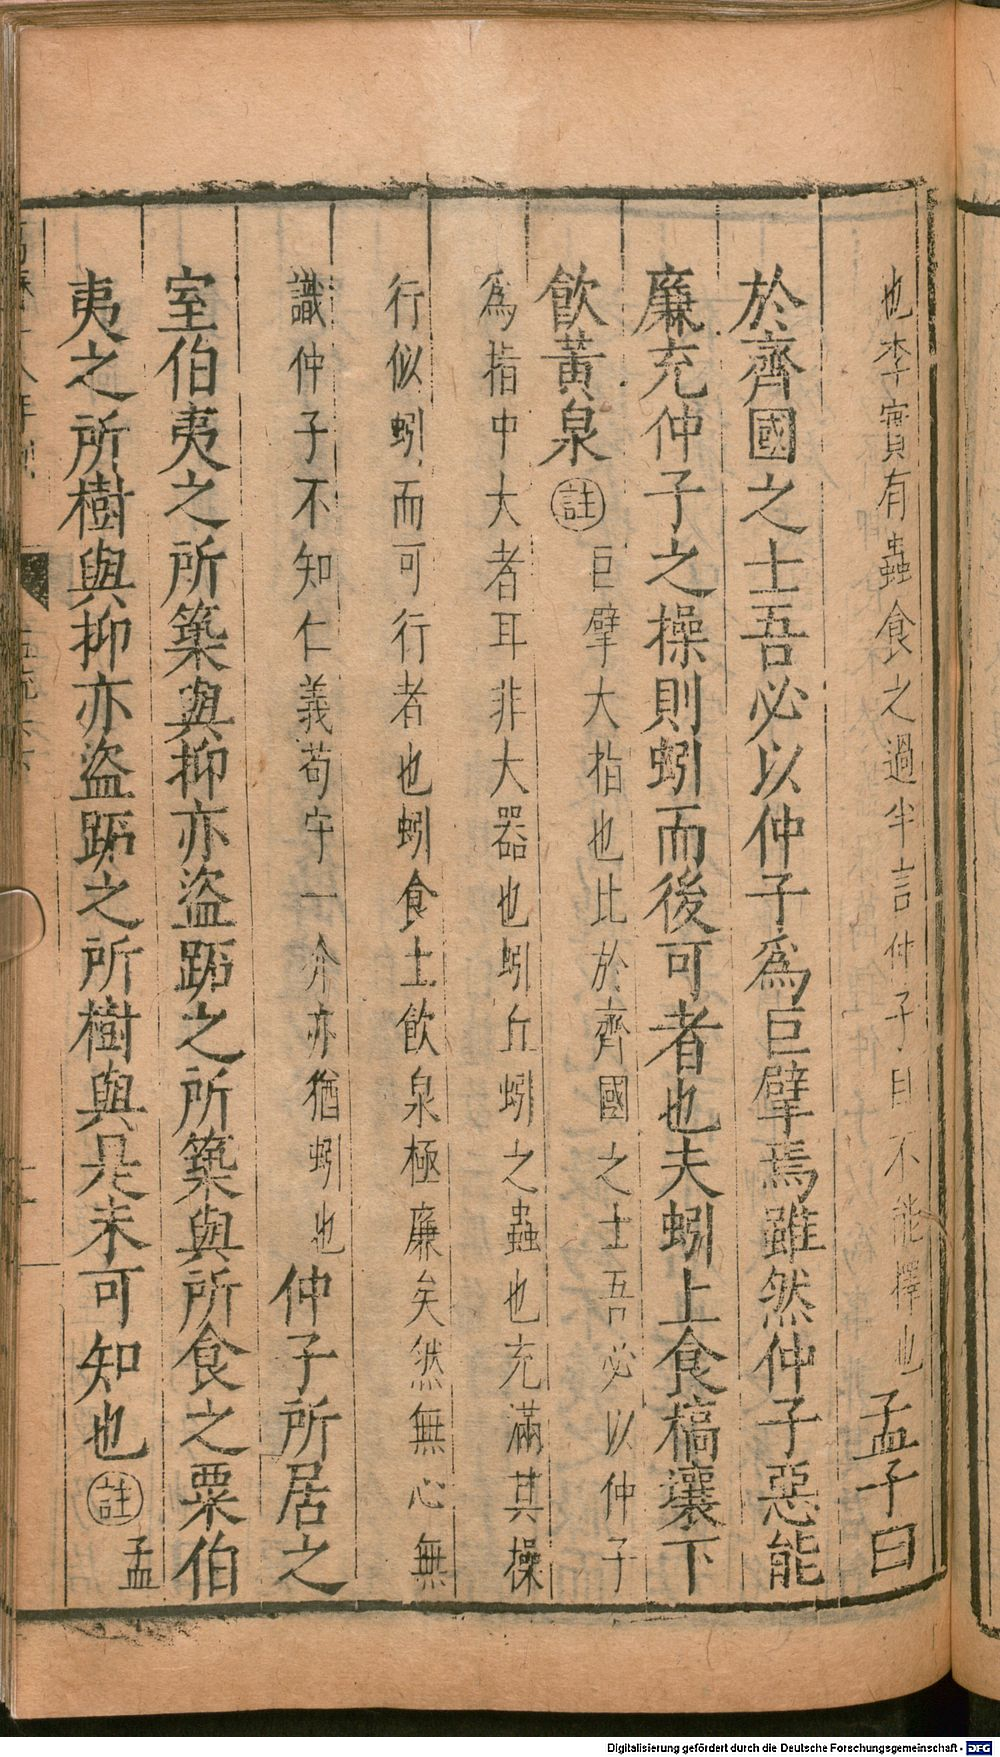 也李實有蟲食之過半言仲子目不能擇也孟子曰
於齊國之士吾必以仲子爲巨擘焉雖然仲子惡能
廉充仲子之操則蚓而後可者也夫蚓上食槁壤下
飲黃泉註巨擘大指也比於齊國之士吾必以仲子
爲指中大者耳非大器也蚓丘蚓之蟲也充滿其操
行似蚓而可行者也蚓食土飲泉極廉矣然無心無
識仲子不知仁義苟守一介亦猶蚓也仲子所居之
室伯夷之所築與抑亦盜跖之所築與所食之粟伯
夷之所樹與抑亦盜跖之所樹與是未可知也註孟
Digitalisierung gefördert durch die Deutsche Forschungsgemeinschaft - DFG